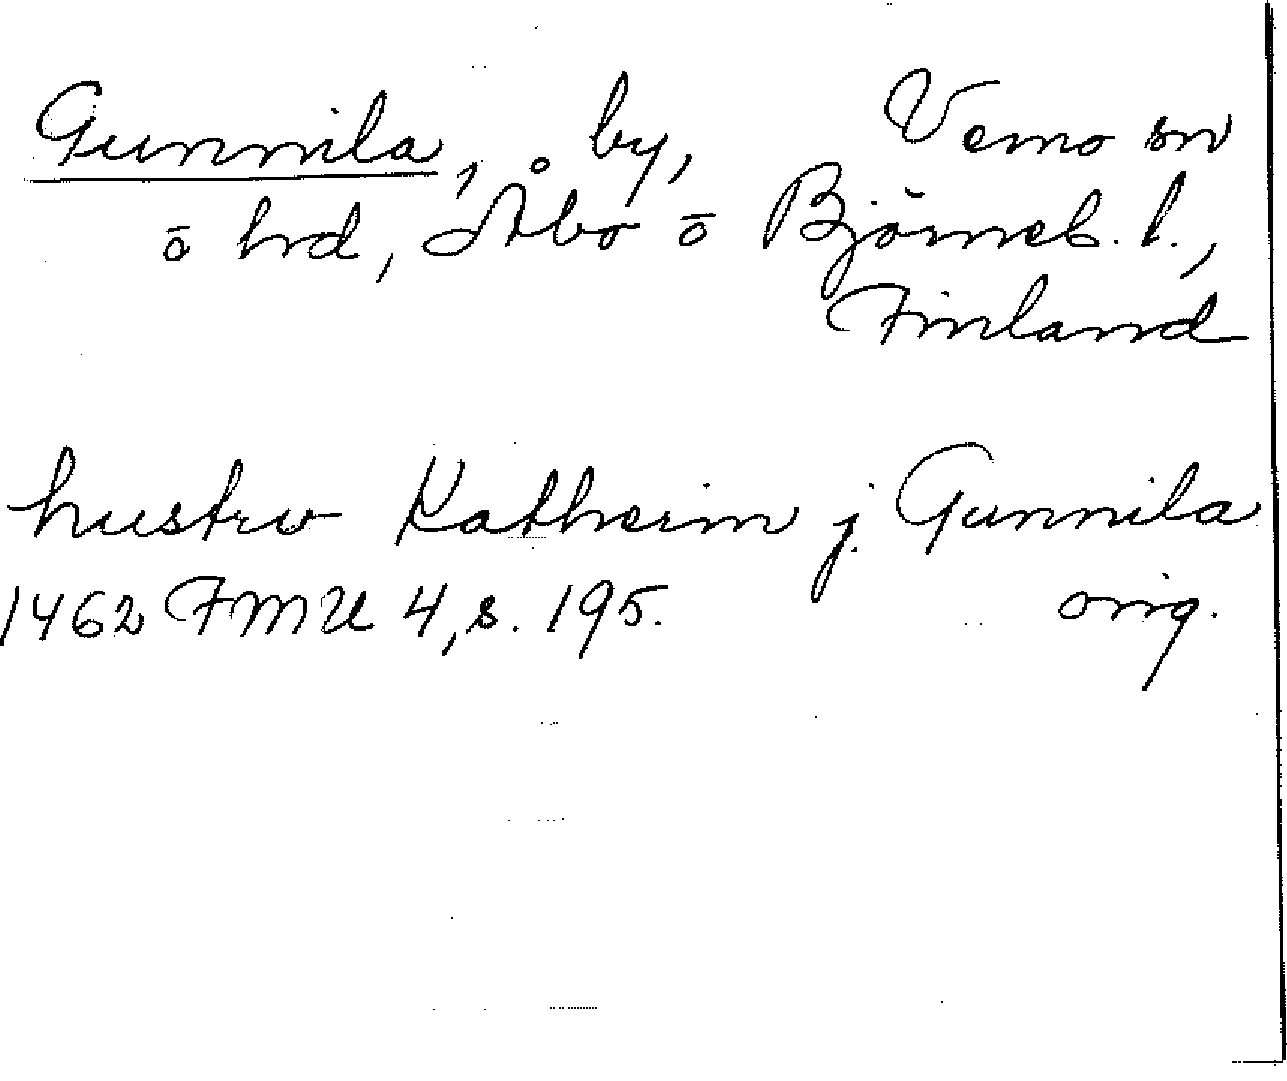 Gunnila, by, Vemo sn
ō hrd, Åbo ō Björneb. l.,
Finland
hustrv Katherin j Gunnila
1462 FMU 4, s. 195. orig.